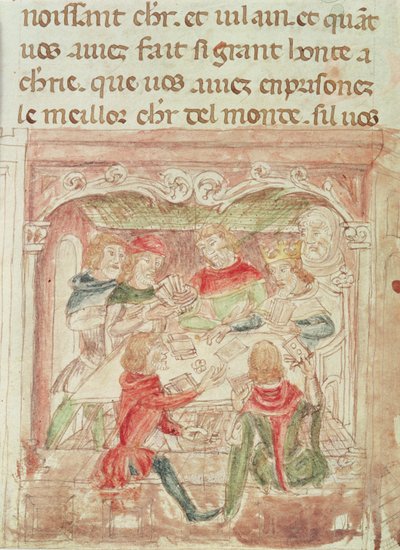 noissant chr̃. et vilain. et quãt
vos aviez fait si grant honte a
chrĩe. que vos aviez enprisonez
le meillor chr̃ del monte. sil vos